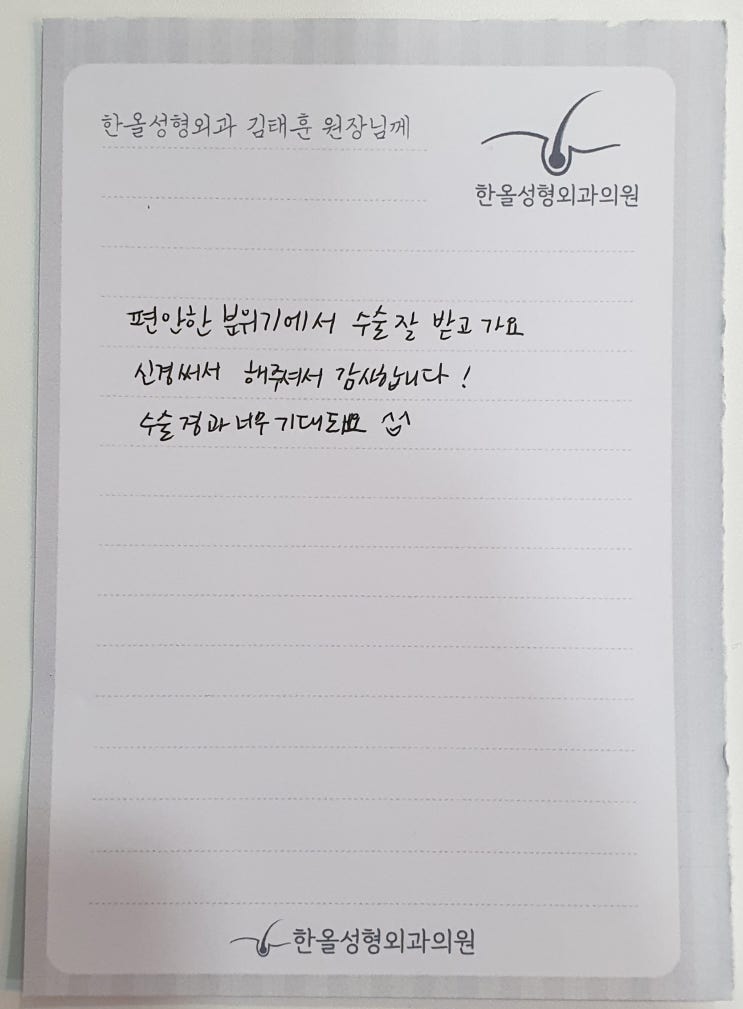 한올성형외과 김태훈 원장님께
한올성형외과의원
편안한 분위기에서 수술 잘 받고 가요
신경써서 해주셔서 감사합니다 !
수술 경과 너무 기대돼요
한올성형외과의원